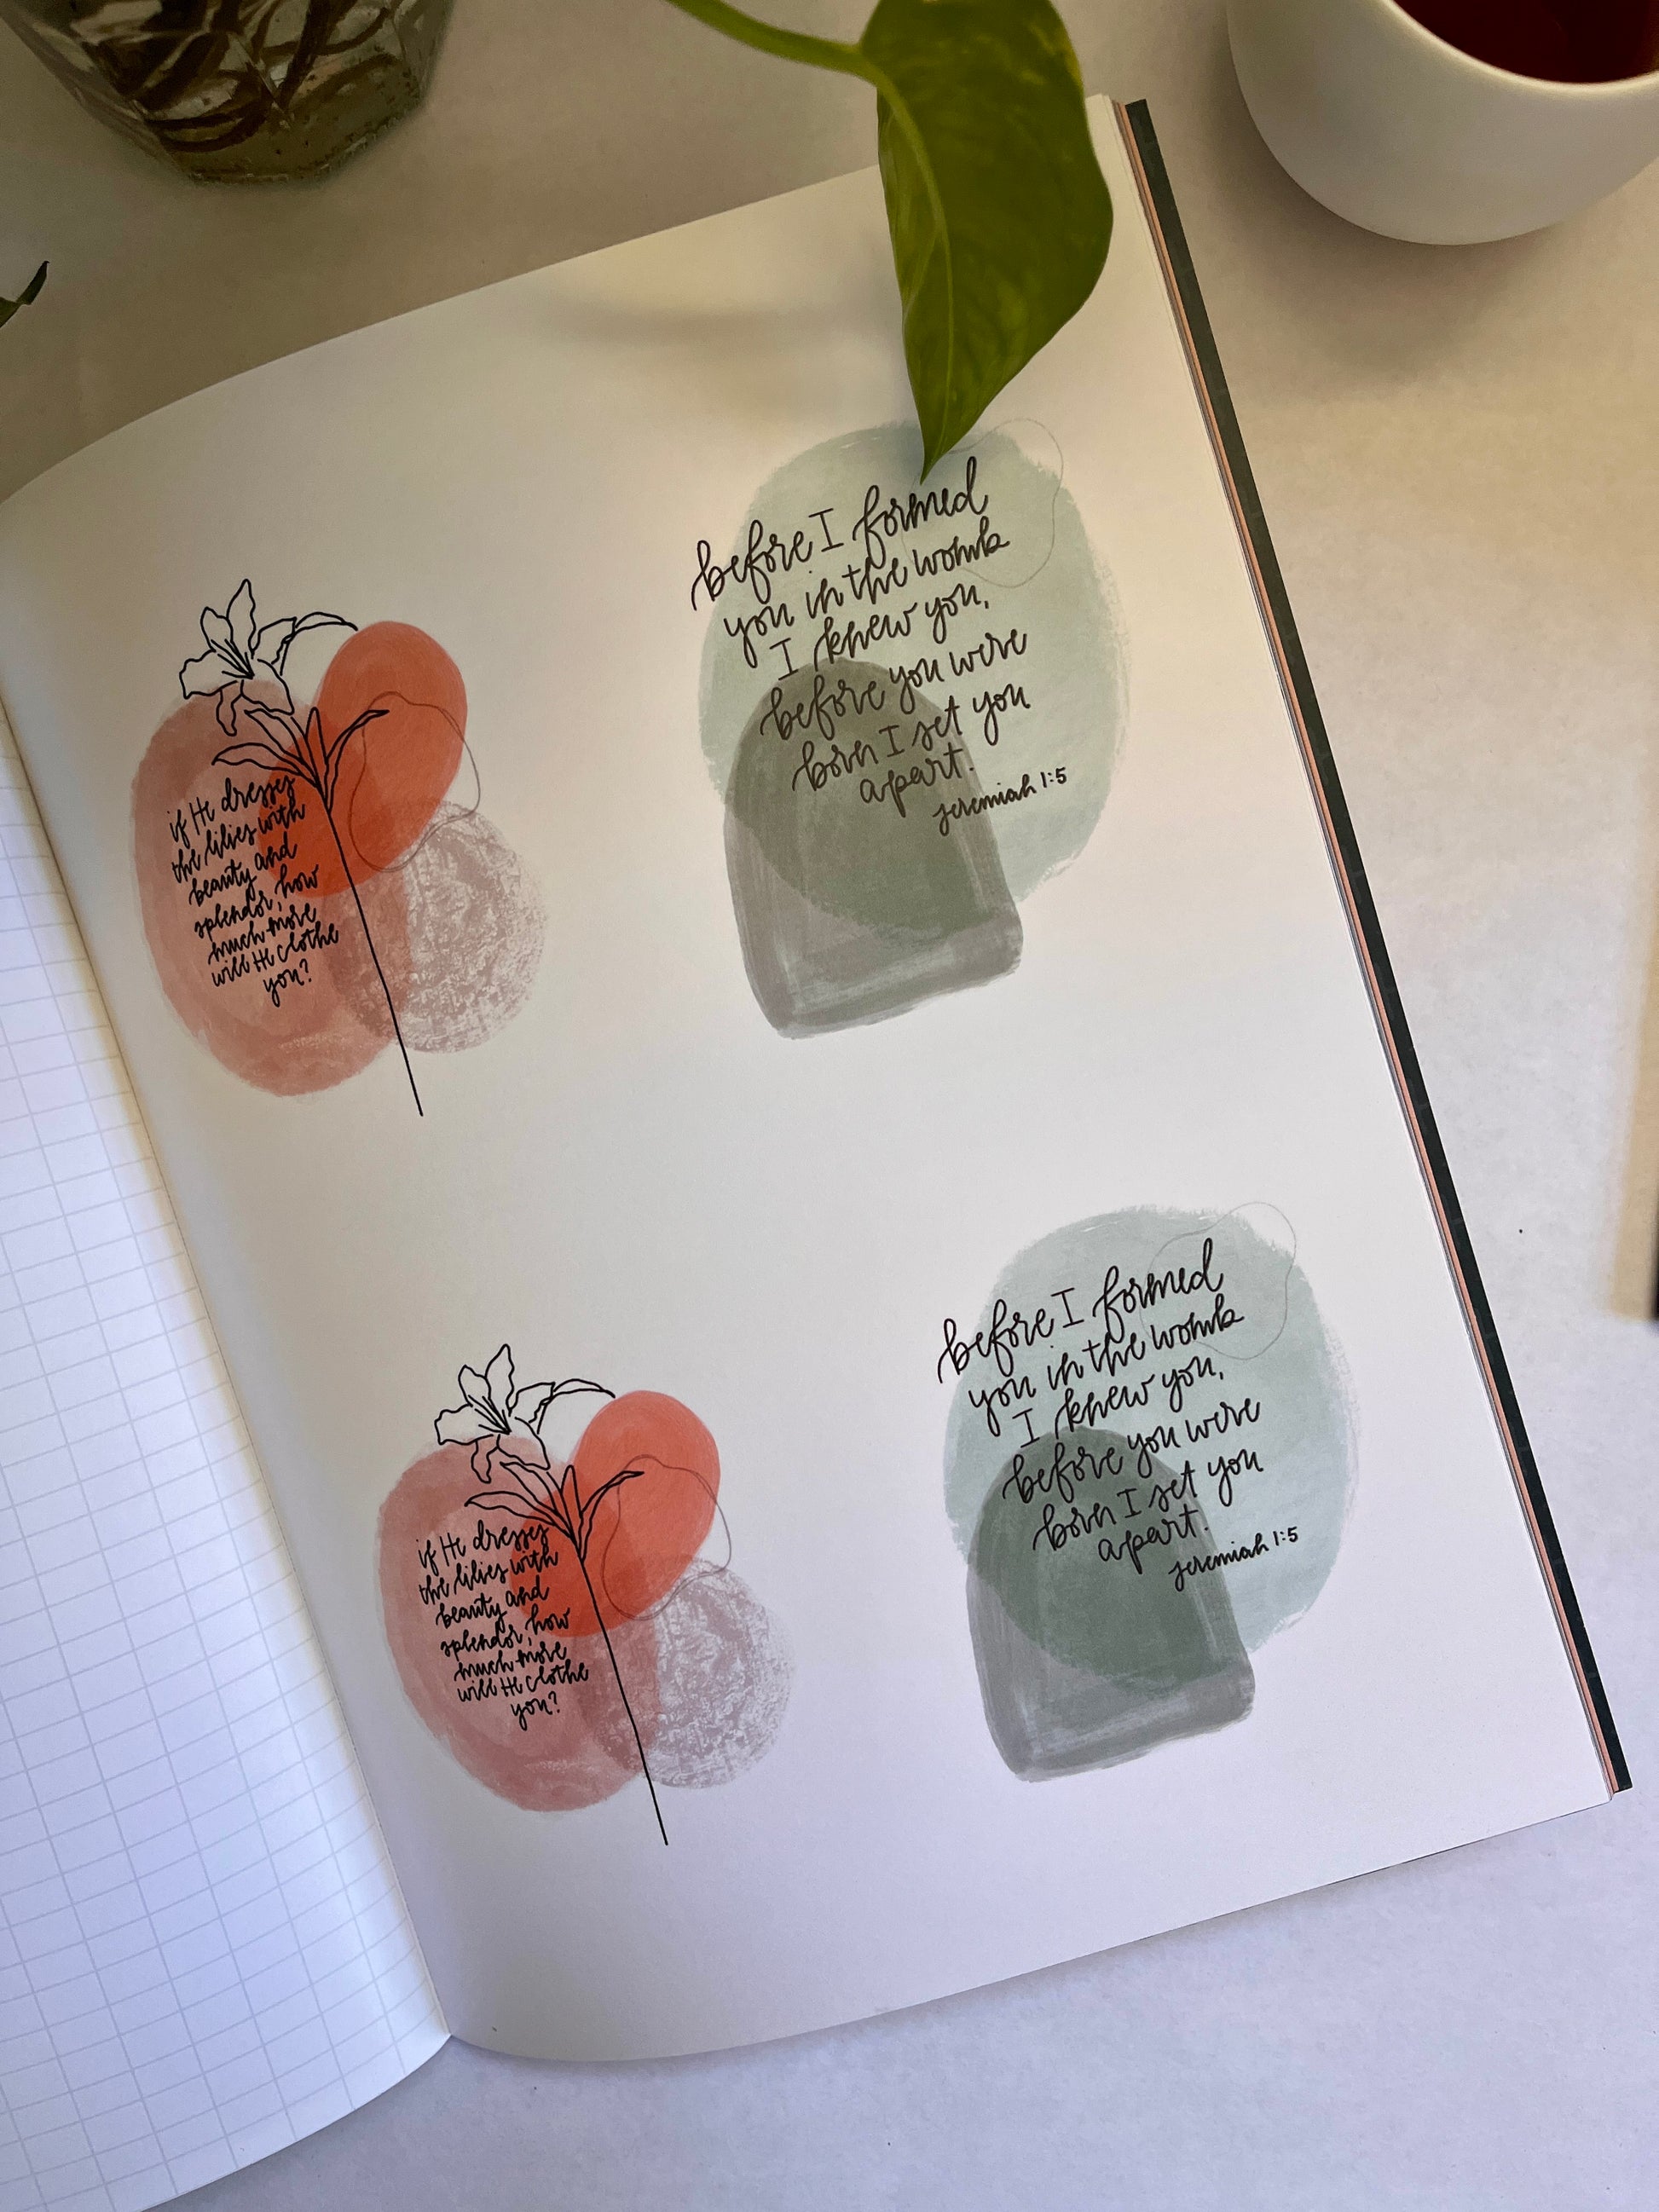 if He dresses
the lilies with
beauty and
splendor, how
much more
will He clothe
you?
before I formed
you in the womb
I knew you,
before you were
born I set you
apart.
Jeremiah 1:5
if He dresses
the lilies with
beauty and
splendor, how
much more
will He clothe
you?
before I formed
you in the womb
I knew you,
before you were
born I set you
apart.
Jeremiah 1:5